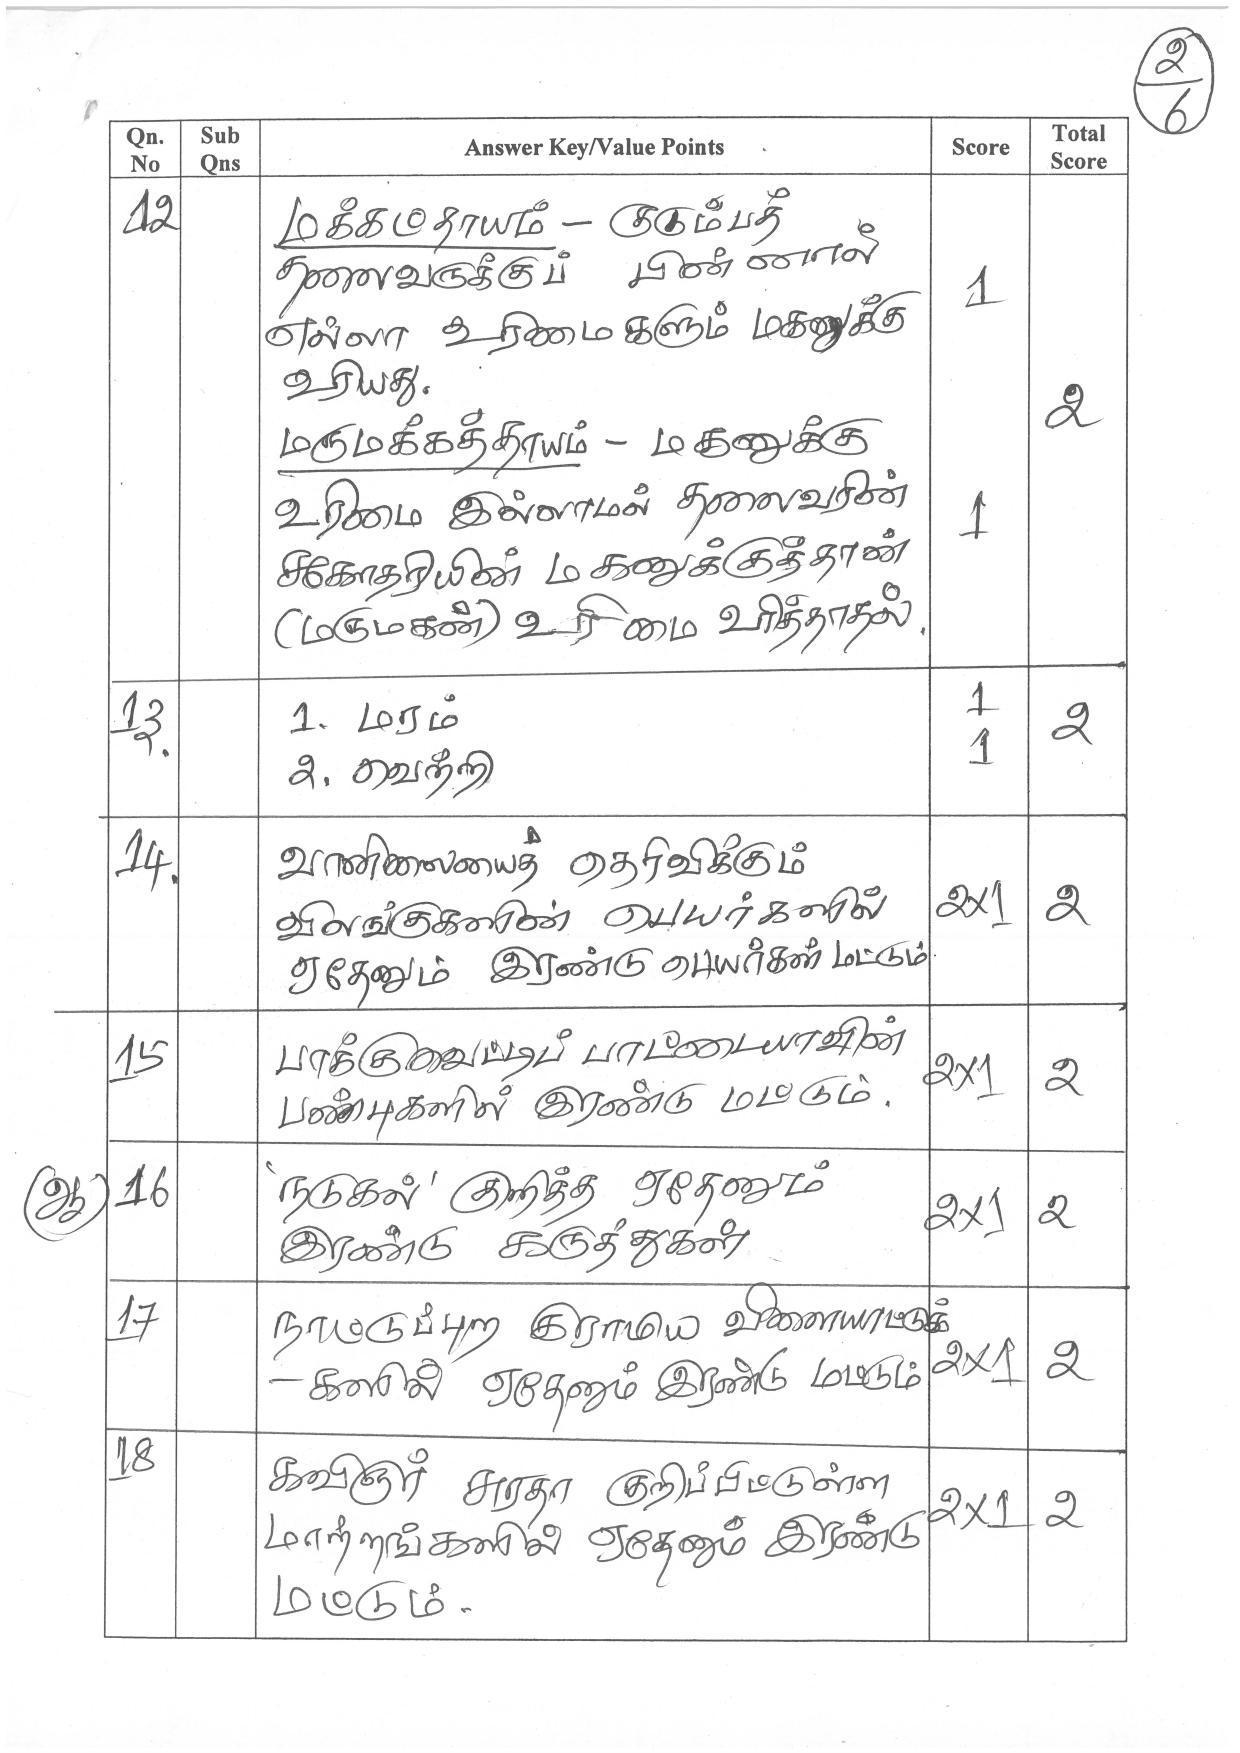 2
6
Qn. No Sub Qns Answer Key/Value Points Score Total Score
12 மக்கதாயம் – குடும்பத்
தலைவருக்குப் பின்னால்
எல்லா உரிமைகளும் மகனுக்கு 1
உரியது. 2
மருமக்கத்தாயம் – மகனுக்கு
உரிமை இல்லாமல் தலைவரின் 1
சகோதரியின் மகனுக்குத்தான்
(மருமகன்) உரிமை உரித்தாதல்.
13. 1. மரம் 1 2
2. வெற்றி 1
14. வானிலையைத் தெரிவிக்கும்
விலங்குகளின் பெயர்களில் 2x1 2
ஏதேனும் இரண்டு பெயர்கள் மட்டும்.
15 பாக்குவெட்டிப் பாட்டையாவின் 2x1 2
பண்புகளில் இரண்டு மட்டும்.
(ஆ) 16 'நடுகல்' குறித்த ஏதேனும் 2x1 2
இரண்டு கருத்துகள்
17 நாட்டுப்புற கிராமிய விளையாட்டுக்
–களில் ஏதேனும் இரண்டு மட்டும் 2x1 2
18 கவிஞர் சுரதா குறிப்பிட்டுள்ள
மாற்றங்களில் ஏதேனும் இரண்டு 2x1 2
மட்டும்.